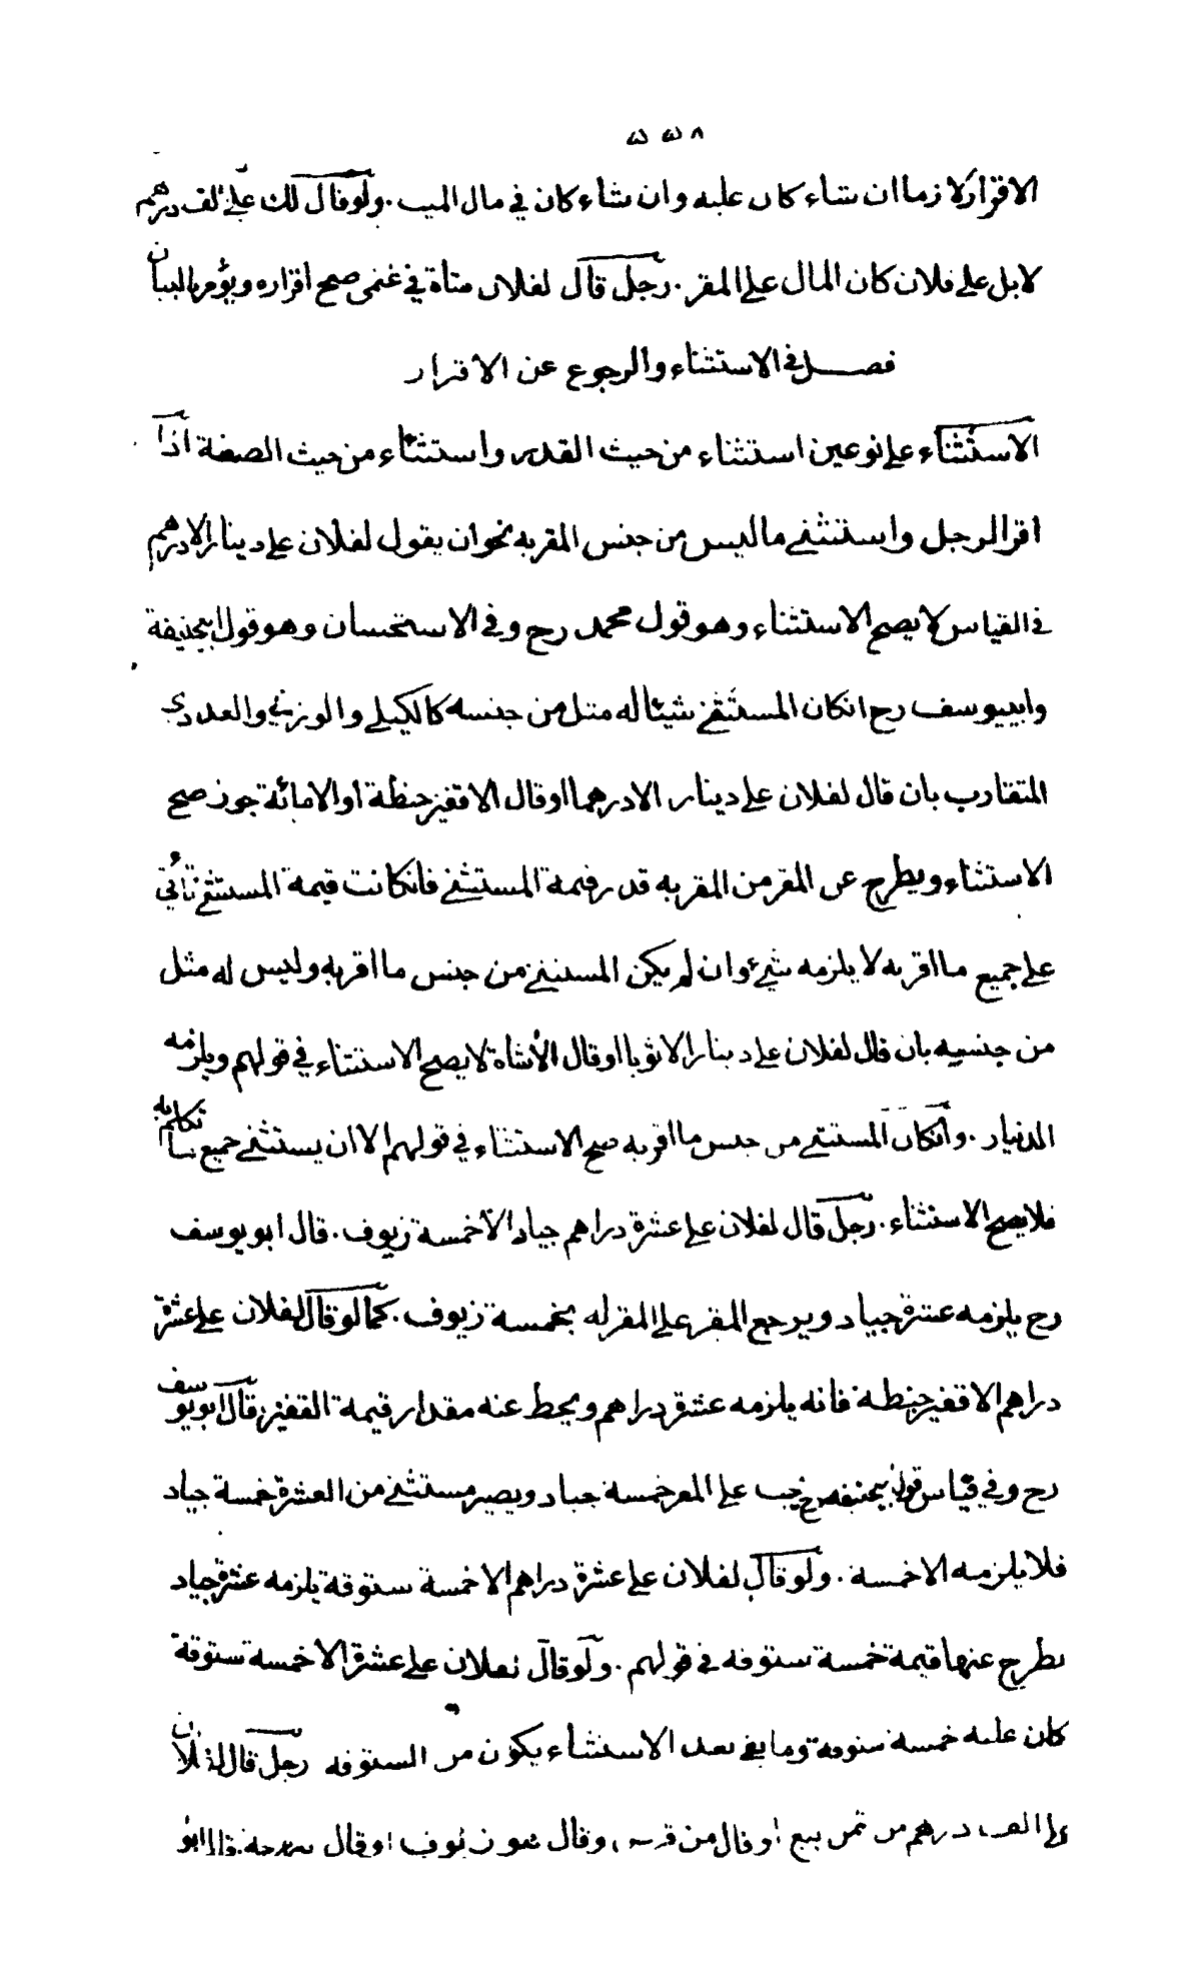 ٥٥٨
الاقرار لازما ان شاء كان عليه وان شاء كان في مال الميت . ولو قال لك علي الف درهم
لا بل على فلان كان المال على المقر . رجل قال لفلان شاة في غنمى صح اقراره ويؤمر بالبيان
فصل في الاستثناء والرجوع عن الاقرار
الاستثناء على نوعين استثناء من حيث القدر واستثناء من حيث الصفة اذا
اقر الرجل واستثنى ما ليس من جنس المقر به نحو ان يقول لفلان على دينار الا درهم
في القياس لا يصح الاستثناء وهو قول محمد رح وفي الاستحسان وهو قول ابيحنيفة
وابييوسف رح انكان المستثنى شيئا له مثل من جنسه كالكيلى والوزنى والعددى
المتقارب بان قال لفلان على دينار الا درهما او قال الا قفيز حنطة او الا مائة جوز صح
الاستثناء ويطرح عن المقر من المقر به قدر قيمة المستثنى فانكانت قيمة المستثنى تأتى
على جميع ما اقر به لا يلزمه شيء وان لم يكن المستثنى من جنس ما اقر به وليس له مثل
من جنسه بان قال لفلان على دينار الا ثوبا او قال الا شاة لا يصح الاستثناء في قولهم ويلزمه
الدنيار . وانكان المستثنى من جنس ما اقر به صح الاستثناء في قولهم الا ان يستثنى جميع ما تكلم به
فلا يصح الاستثناء . رجل قال لفلان على عشرة دراهم جياد الا خمسة زيوف . قال ابو يوسف
رح يلزمه عشرة جياد ويرجع المقر على المقر له بخمسة زيوف . كما لو قال لفلان على عشرة
دراهم الا قفيز حنطة فانه يلزمه عشرة دراهم ويحط عنه مقدار قيمة القفيز قال ابو يوسف
رح وفي قياس قول ابيحنيفة رح يجب على المقر خمسة جياد ويصير مستثنى من العشرة خمسة جياد
فلا يلزمه الا خمسة . ولو قال لفلان على عشرة دراهم الا خمسة ستوقة يلزمه عشرة جياد
يطرح عنها قيمة خمسة ستوقة في قولهم . ولو قال لفلان على عشرة الا خمسة ستوقة
كان عليه خمسة ستوقة وما بقى بعد الاستثناء يكون من الستوقة رجل قال لفلان
على الف درهم من ثمن بيع او قال من قرض وقال هى زيوف او قال نبهرجة قال ابو